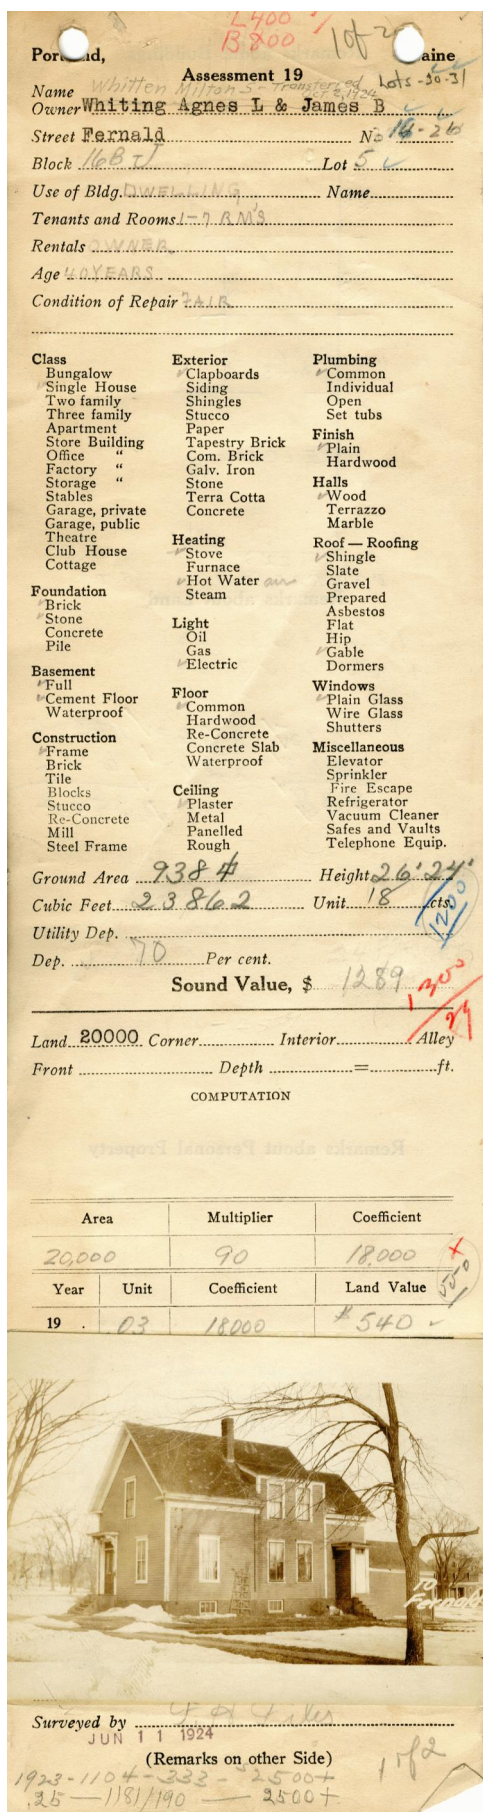 L400
B800
1 of 2
Portland, Maine
Assessment 19
Lots-30-31
Name Whitten Milton S - Transferred
Oct 2, 1924
Owner Whiting Agnes L & James B
Street Fernald No 16-26
Block 16B Lot 5
Use of Bldg. DWELLING Name
Tenants and Rooms 1-7 RM'S
Rentals OWNER
Age 40 YEARS
Condition of Repair FAIR
Class
Bungalow
Single House
Two family
Three family
Apartment
Store Building
Office "
Factory "
Storage "
Stables
Garage, private
Garage, public
Theatre
Club House
Cottage
Foundation
Brick
Stone
Concrete
Pile
Basement
Full
Cement Floor
Waterproof
Construction
Frame
Brick
Tile
Blocks
Stucco
Re-Concrete
Mill
Steel Frame
Exterior
Clapboards
Siding
Shingles
Stucco
Paper
Tapestry Brick
Com. Brick
Galv. Iron
Stone
Terra Cotta
Concrete
Heating
Stove
Furnace
Hot Water air
Steam
Light
Oil
Gas
Electric
Floor
Common
Hardwood
Re-Concrete
Concrete Slab
Waterproof
Ceiling
Plaster
Metal
Panelled
Rough
Plumbing
Common
Individual
Open
Set tubs
Finish
Plain
Hardwood
Halls
Wood
Terrazzo
Marble
Roof — Roofing
Shingle
Slate
Gravel
Prepared
Asbestos
Flat
Hip
Gable
Dormers
Windows
Plain Glass
Wire Glass
Shutters
Miscellaneous
Elevator
Sprinkler
Fire Escape
Refrigerator
Vacuum Cleaner
Safes and Vaults
Telephone Equip.
Ground Area 938 Height 26' 24'
Cubic Feet 23862 Unit 18 cts.
1200
Utility Dep.
Dep. 70 Per cent.
Sound Value, $ 1289
1300
Land 20000 Corner Interior Alley
Front Depth = ft.
COMPUTATION
Remarks about Personal Property
Area Multiplier Coefficient
20,000 90 18,000
550
Year Unit Coefficient Land Value
19 . .03 18000 $540
TO
Fernald
Surveyed by
JUN 11 1924
(Remarks on other Side)
1 of 2
1923-1104-333-$2500+
.25 — 1181/190 — 2500+